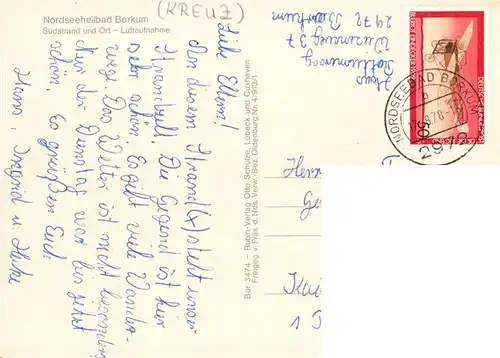 Nordseeheilbad Borkum
Südstrand und Ort – Luftaufnahme
(KREUZ)
Liebe Eltern!
An diesem Strand (x) steht unser
Strandzelt. Die Gegend ist hier
sehr schön. Es gibt viele Wander-
wege. Das Wetter ist nicht besonders,
der Dienstag war bis jetzt
schön. Es grüßen Euch
Hans, Ingrid u. Heike
Bor 3474 – Rubin-Verlag Otto Schulze, Lübeck und Cuxhaven
Freigeg. v. Präs. d. Nds. Verw.-Bez. Oldenburg Nr. 4/913/1
Haus
37
2972 Borkum
DEUTSCHE BUNDESPOST
50
NORDSEEBAD BORKUM
2972
1